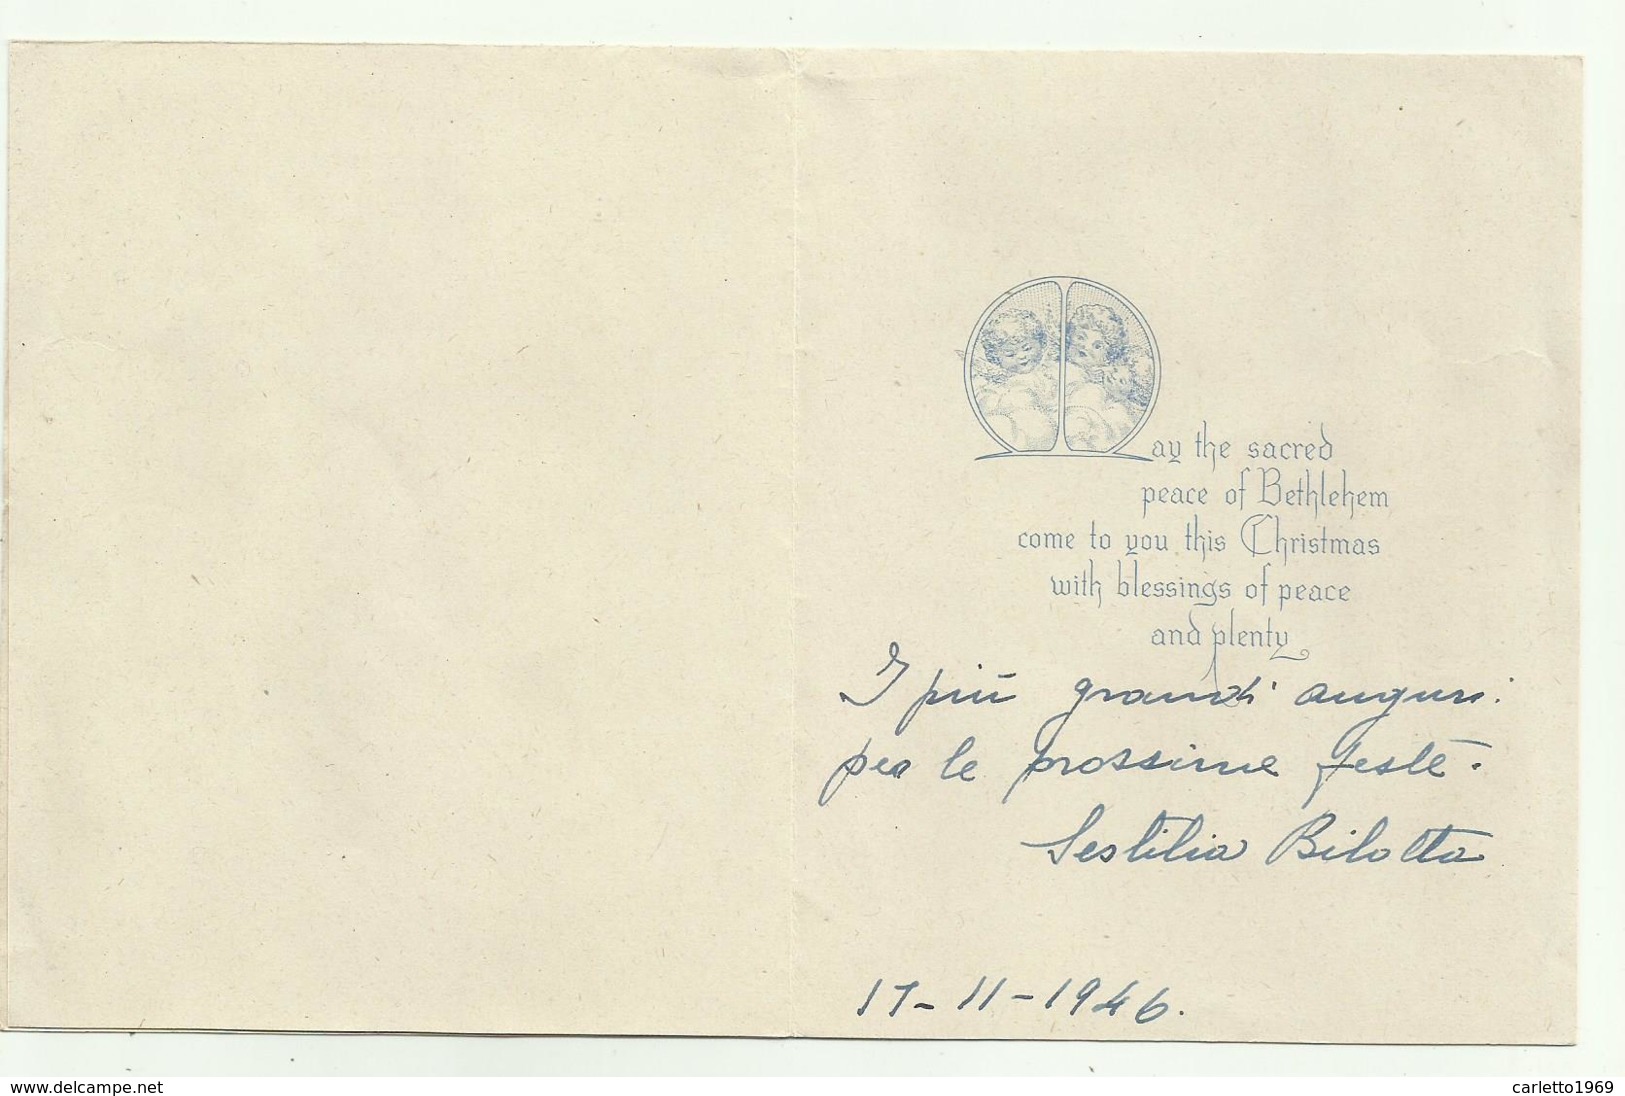 May the sacred
peace of Bethlehem
come to you this Christmas
with blessings of peace
and plenty
I più grandi auguri
per le prossime feste.
Sestilia Bilotta
17-11-1946.
www.delcampe.net
carletto1969